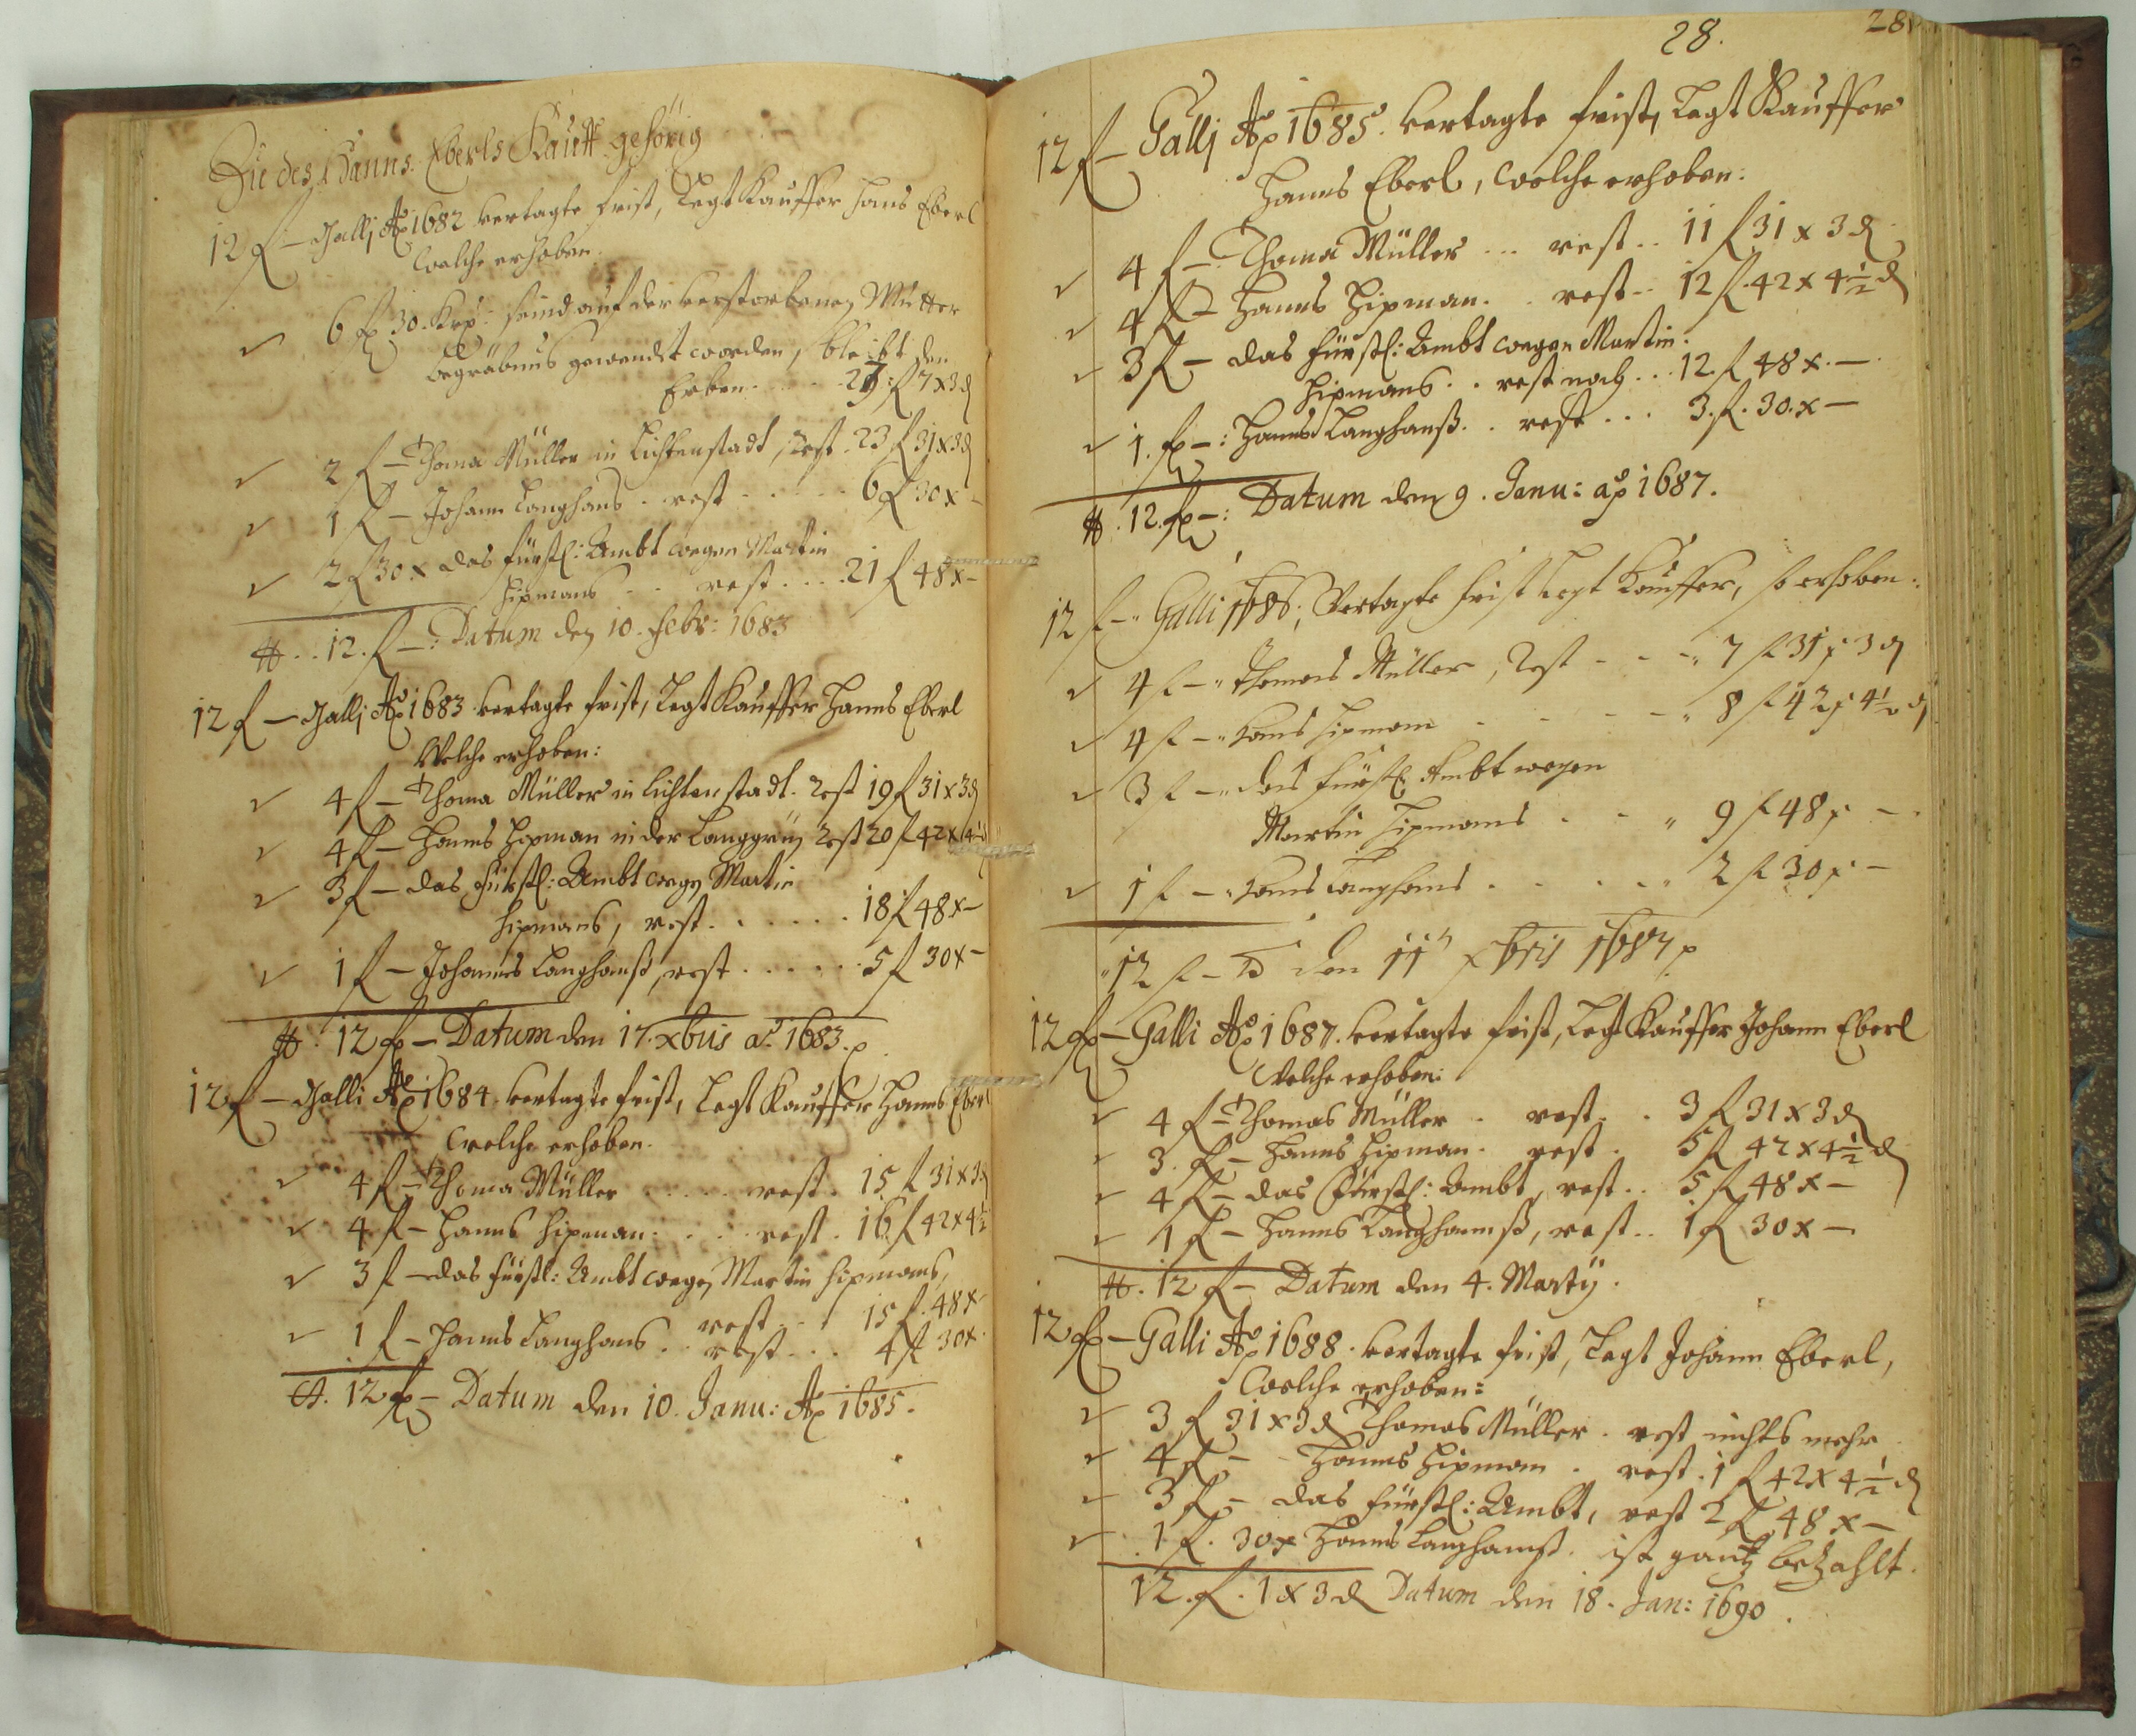 Zu des Hanns Eberls Kauff gehörig
12 f — Galli Ao 1682 vertagte frist, Legt Kauffer Hans Eberl
welche erhoben.
6 fl 30. Krz: seind auf der verstorbenen Mutter
begräbnus gewendet worden, bleibt den
Erben . . . . 27 f 7 x 3 d
2 f — Thoma Müller in Lichtenstadt, Rest . 23 f 31 x 3 d
1 f — Johann Langhans . rest . . . . . 6 f 30 x —
2 f 30 x das fürstl: Ambt wegen Martin
Hipmans . . rest . . . . 21 f 48 x —
12. f —: Datum den 10. Febr: 1683
12 f — Galli Ao 1683 vertagte frist, Legt Kauffer Hanns Eberl
Welche erhoben:
4 f — Thoma Müller in Lichtenstadt. Rest 19 f 31 x 3 d
4 f — Hanns Hipman in der Langgrün Rest 20 f 42 x 4½
3 f — das Fürstl: Ambt wegen Martin
Hipmans, rest . . . . . . 18 f 48 x —
1 f — Johannes Langhanß, rest . . . . . . 5 f 30 x —
12 f — Datum den 17. xbris ao. 1683.
12 f — Galli Ao 1684 . vertagte frist, Legt Kauffer Hanns Eberl
welche erhoben.
4 f — Thoma Müller . . . . . rest . 15 f 31 x 3 d
4 f — Hanns Hipman . . . . rest . 16 f 42 x 4½
3 f — das fürstl: Ambt wegen Martin Hipmans,
rest . . 15 f. 48 x
1 f — Hanns Langhans . . rest . . . 4 f 30 x.
12 f — Datum den 10. Janu: Ao 1685.
28. 28
12 f — Galli Ao 1685. vertagte frist, Legt Kauffer
Hanns Eberl, welche erhoben:
4 f — Thoma Müller ... rest .. 11 f 31 x 3 d
4 f — Hanns Hipman . . rest .. 12 f. 42 x 4½ d
3 f — das fürstl: Ambt wegen Martin
Hipmans . . rest noch ... 12. f 48 x. —
1. f —: Hanns Langhanß . . rest ... 3. f. 30. x —
12. f —: Datum den 9. Janu: ao 1687.
12 f — Galli 1686; Vertagte frist Legt Kauffer, so erhoben:
4 f — Thomas Müller, Rest - - - 7 f 31 x 3 d
4 f — Hans Hipmann - - - - 8 f 42 x 4½ d
3 f — das fürstl Ambt wegen
Martin Hipmans . - 9 f 48 x —
1 f — Hans Langhans . . . . . 2 f 30 x —
12 f — D den 11 xbris 1687
12 f — Galli Ao 1687. vertagte frist, Legt Kauffer Johann Eberl
Welche erhoben:
4 f — Thomas Müller . rest . . 3 f 31 x 3 d
3. f — Hanns Hipman . rest . 5 f 42 x 4½ d
4 f — das Fürstl: Ambt, rest .. 5 f 48 x —
1 f — Hanns Langhannß, rest .. 1 f 30 x —
12 f — Datum den 4. Martij.
12 f — Galli Ao 1688 . vertagte frist, Legt Johann Eberl,
Welche erhoben:
3 f 31 x 3 d Thomas Müller . rest nichts mehr
4 f — Hanns Hipman . rest . 1 f 42 x 4½ d
3 f — das Fürstl: Ambt, rest 2 f 48 x —
1 f. 30 x Hanns Langhanß . ist gantz bezahlt.
12. f. 1 x 3 d Datum den 18. Jan: 1690.